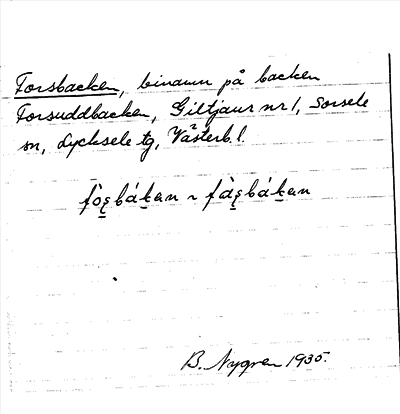 Forsbacken, binamn på backen
Forsuddbacken, Giltjaur nr 1, Sorsele
sn, Lycksele tg, Västerb. l.
B. Nygren 1935.